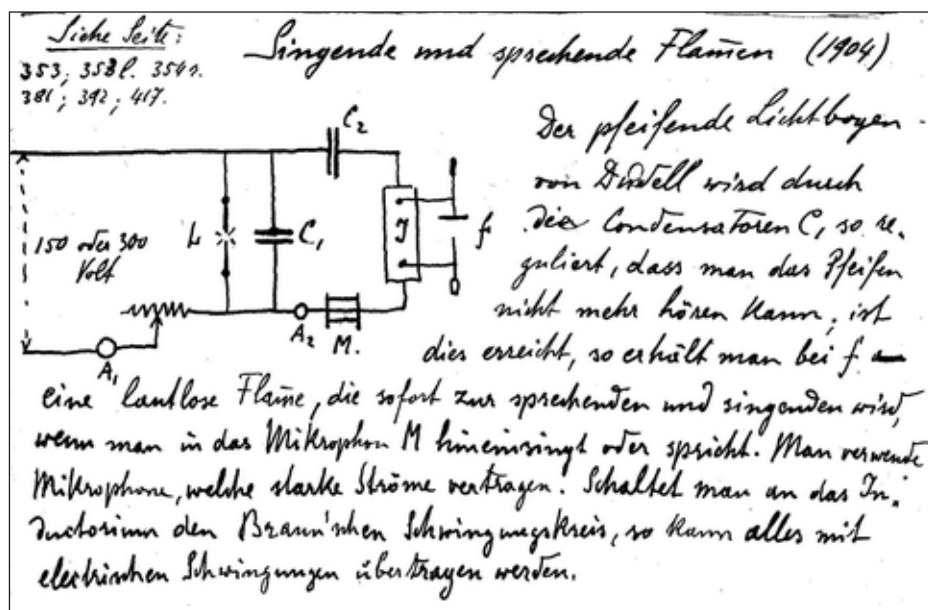 Siehe Seite:
353; 353 l. 354 r.
381; 392; 417.
Singende und sprechende Flam̅en (1904)
C2
150 oder 300
Volt
L
C1
J
f
A1
A2
M.
Der pfeifende Lichtbogen
von Duddell wird durch
die Condensatoren C1 so re-
guliert, dass man das Pfeifen
nicht mehr hören kann; ist
dies erreicht, so erhält man bei f
eine lautlose Flam̅e, die sofort zur sprechenden und singenden wird,
wenn man in das Mikrophon M hineinsingt oder spricht. Man verwende
Mikrophone, welche starke Ströme vertragen. Schaltet man an das In-
ductorium den Braun'schen Schwingungskreis, so kann alles mit
electrischen Schwingungen übertragen werden.